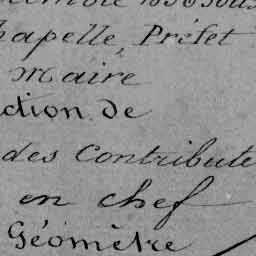 hapelle, Préfet
Maire
ction de
des Contribute
en chef
Géomètre